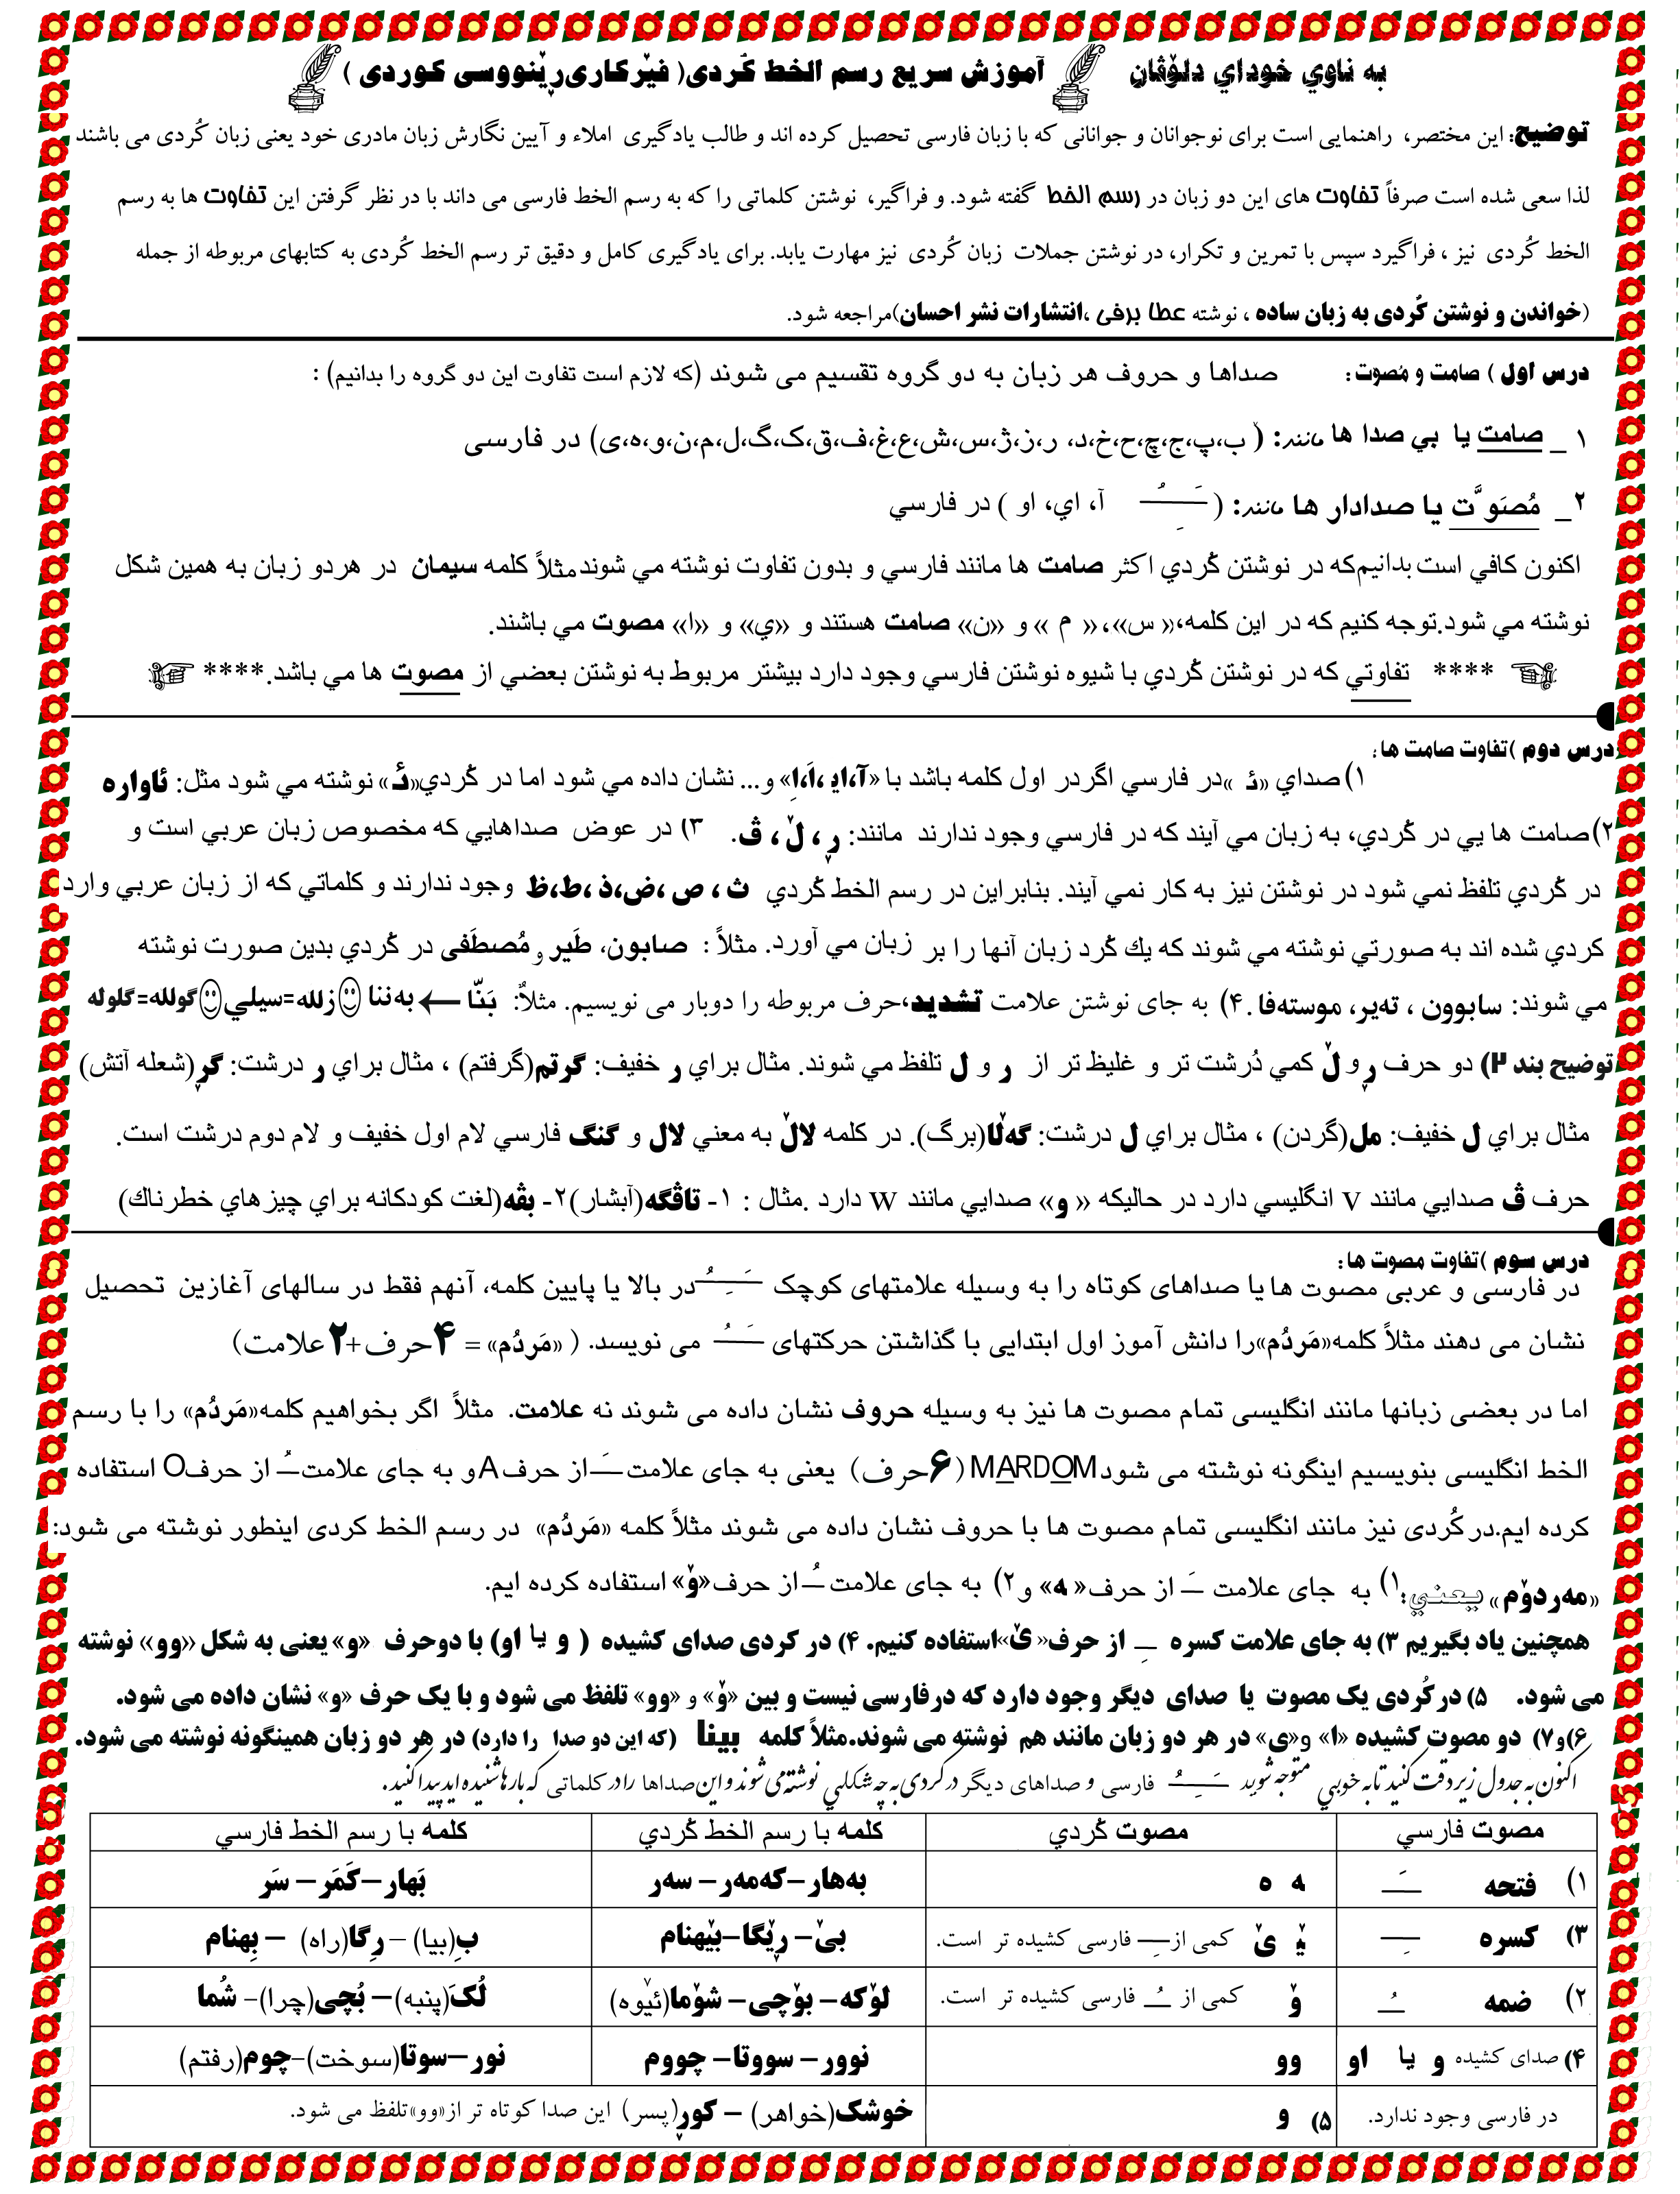 به ناوي خوداي دلۆڤان آموزش سريع رسم الخط كُردی( فێركاری ڕێنووسی كوردی )
توضيح: اين مختصر، راهنمايی است برای نوجوانان و جوانانی كه با زبان فارسی تحصيل كرده اند و طالب يادگيری املاء و آيين نگارش زبان مادری خود يعنی زبان كُردی می باشند
لذا سعی شده است صرفاً تفاوت های اين دو زبان در رسم الخط گفته شود. و فراگير، نوشتن كلماتی را كه به رسم الخط فارسی می داند با در نظر گرفتن اين تفاوت ها به رسم
الخط كُردی نيز ، فراگيرد سپس با تمرين و تكرار، در نوشتن جملات زبان كُردی نيز مهارت يابد. برای يادگيری كامل و دقيق تر رسم الخط كُردی به كتابهای مربوطه از جمله
(خواندن و نوشتن كُردی به زبان ساده ، نوشته عطا برفی ،انتشارات نشر احسان)مراجعه شود.
درس اول ) صامت و مُصوت : صداها و حروف هر زبان به دو گروه تقسیم می شوند (که لازم است تفاوت این دو گروه را بدانیم) :
۱ _ صامت يا بي صدا ها مانند: ( ب،پ،ج،چ،ح،خ،د، ر،ز،ژ،س،ش،ع،غ،ف،ق،ک،گ،ل،م،ن،و،ه،ی) در فارسی
۲_ مُصَوَّت يا صدادار ها مانند: ( ـَـِـُ آ، اي، او ) در فارسي
اكنون كافي است بدانيم كه در نوشتن كُردي اكثر صامت ها مانند فارسي و بدون تفاوت نوشته مي شوند مثلاً كلمه سيمان در هردو زبان به همين شكل
نوشته مي شود.توجه كنيم كه در اين كلمه،« س»،« م » و «ن» صامت هستند و «ي» و «ا» مصوت مي باشند.
**** تفاوتي كه در نوشتن كُردي با شيوه نوشتن فارسي وجود دارد بيشتر مربوط به نوشتن بعضي از مصوت ها مي باشد.****
درس دوم )تفاوت صامت ها :
۱) صداي «ئـ »در فارسي اگردر اول كلمه باشد با «آ،ايـ ،اَ،اِ» و... نشان داده مي شود اما در كُردي«ئـ» نوشته مي شود مثل: ئاواره
۲)صامت ها يي در كُردي، به زبان مي آيند كه در فارسي وجود ندارند مانند: ڕ ، ڵ ، ڤ. ۳) در عوض صداهايي كه مخصوص زبان عربي است و
در كُردي تلفظ نمي شود در نوشتن نيز به كار نمي آيند. بنابراين در رسم الخط كُردي ث ، ص ،ض،ذ ،ط،ظ وجود ندارند و كلماتي كه از زبان عربي وارد
كردي شده اند به صورتي نوشته مي شوند كه يك كُرد زبان آنها را بر زبان مي آورد. مثلاً : صابون، طَير و مُصطَفی در كُردي بدين صورت نوشته
مي شوند: سابوون ، تهير، موستهفا .۴) به جای نوشتن علامت تشديد،حرف مربوطه را دوبار می نويسيم. مثلاً: بَنّا ← بهننا زلله=سيلي گولله=گلوله
توضيح بند ۲) دو حرف ڕ و ڵ كمي دُرشت تر و غليظ تر از ر و ل تلفظ مي شوند. مثال براي ر خفيف: گرتم(گرفتم) ، مثال براي ر درشت: گڕ(شعله آتش)
مثال براي ل خفيف: مل(گردن) ، مثال براي ل درشت: گهڵا(برگ). در كلمه لاڵ به معني لال و گنگ فارسي لام اول خفيف و لام دوم درشت است.
حرف ڤ صدايي مانند V انگليسي دارد در حاليكه « و» صدايي مانند W دارد .مثال : ۱- تاڤگه(آبشار)۲- بڤه(لغت كودكانه براي چيزهاي خطرناك)
درس سوم )تفاوت مصوت ها :
در فارسی و عربی مصوت ها یا صداهای کوتاه را به وسیله علامتهای کوچک ـَـِـُ در بالا یا پایین کلمه، آنهم فقط در سالهای آغازین تحصیل
نشان می دهند مثلاً کلمه«مَردُم»را دانش آموز اول ابتدایی با گذاشتن حرکتهای ـَـُ می نویسد. ( «مَردُم» = ۴حرف+۲علامت)
اما در بعضی زبانها مانند انگلیسی تمام مصوت ها نیز به وسیله حروف نشان داده می شوند نه علامت. مثلاً اگر بخواهیم کلمه«مَردُم» را با رسم
الخط انگلیسی بنویسیم اینگونه نوشته می شود MARDOM (۶حرف) یعنی به جای علامت ـَ از حرف A و به جای علامت ـُ از حرف O استفاده
کرده ایم.در کُردی نیز مانند انگلیسی تمام مصوت ها با حروف نشان داده می شوند مثلاً کلمه «مَردُم» در رسم الخط کردی اینطور نوشته می شود:
«مهردۆم» يعني:۱) به جای علامت ـَ از حرف« ه» و ۲) به جای علامت ـُ از حرف«ۆ» استفاده کرده ایم.
همچنین یاد بگیریم ۳) به جای علامت کسره ـِ از حرف«ێ»استفاده کنیم. ۴) در کردی صدای کشیده ( و یا او) با دوحرف «و» یعنی به شکل «وو» نوشته
می شود. ۵) درکُردی یک مصوت یا صدای دیگر وجود دارد که درفارسی نیست و بین «ۆ» و «وو» تلفظ می شود و با یک حرف «و» نشان داده می شود.
۶)و۷) دو مصوت کشیده «ا» و«ی» در هر دو زبان مانند هم نوشته می شوند.مثلاً کلمه بینا (که این دو صدا را دارد) در هر دو زبان همینگونه نوشته می شود.
اکنون به جدول زیر دقت کنید تا به خوبی متوجه شوید ـَـِـُ فارسی و صداهای دیگر در کردی به چه شکلی نوشته می شوند و این صداها را در کلماتی که بارها شنیده اید پیدا کنید.
مصوت فارسي مصوت كُردي كلمه با رسم الخط كُردي كلمه با رسم الخط فارسي
۱) فتحه ـَ ـه ه بههار–كهمهر– سهر بَهار–كَمَر– سَر
۳) کسره ـِ ێـ ێ کمی از ـِ فارسی کشیده تر است. بێ– ڕێگا–بێهنام بِ(بیا) – رِگا(راه) – بِهنام
۲) ضمه ـُ ۆ کمی از ـُ فارسی کشیده تر است. لۆکه– بۆچی– شۆما(ئێوه) لُکَ(پنبه)– بُچی(چرا)– شُما
۴) صدای کشیده و یا او وو نوور– سووتا– چووم نور–سوتا(سوخت)–چوم(رفتم)
در فارسی وجود ندارد. ۵) و خوشک(خواهر) – کوڕ(پسر) این صدا کوتاه تر از«وو»تلفظ می شود.